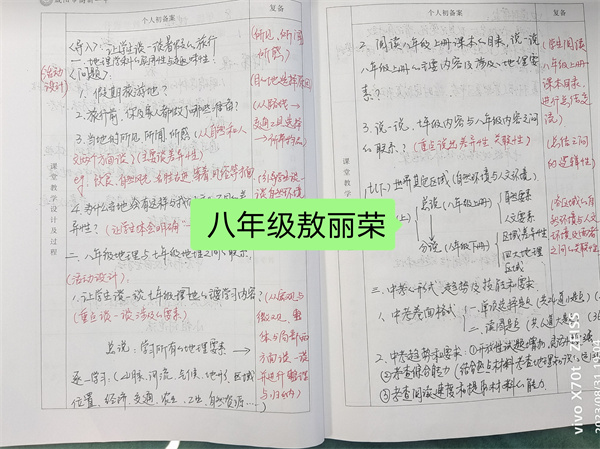 个人初备案
复备
<导入>:让学生谈一谈暑假的旅行
一、地理学科的实用性与趣味性:
(活动设计)
<问题>:
1、假期旅游地?
2、旅行前,你及家人都做了哪些准备?
3、当地的所见、所闻、所感(从自然和人文两个方面谈)(主要谈差异性)
eg:饮食、自然风光
异性?(让学生体会明确
二、八年级地理与七年级地理之间的联系,
(活动设计),
1、让学生谈一谈七年级地理的主要学习内容?
(重点谈一谈涉及的要素)
总说:学习所有的地理要素
逐一学习,(山脉、河流、气候、地形、区域位置、经济、交通、农业、工业、自然资源……)
(所见、所闻所感)
(目的地选择原因)
课堂教学设计及过程
八年级敖丽荣
个人初备案
复备
2、阅读八年级上册课本的目录,说一说八年级上册的主要内容及涉及的地理要素?
3、说一说,七年级内容与八年级内容之间的联系?(重点说出差异性、关联性)
(学生阅读八年级上册课本目录,进行总结交流)
(总结之间的逻辑性)
七(下)世界其他区域(自然环境与人文环境)
总说(八年级上册)
自然要素
人文要素
分说(八年级下册)
区域差异性
四大地理区域
三、中考的形式、趋势及技能和要求
1、中考卷面格式
一、单项选择题
二、读图题
2、中考趋势和要求:
②考查综合能力
③考查阅读速度和提取材料的能力
课堂教学设计及过程
vivo X70t ZEISS
2023/08/31 11:04